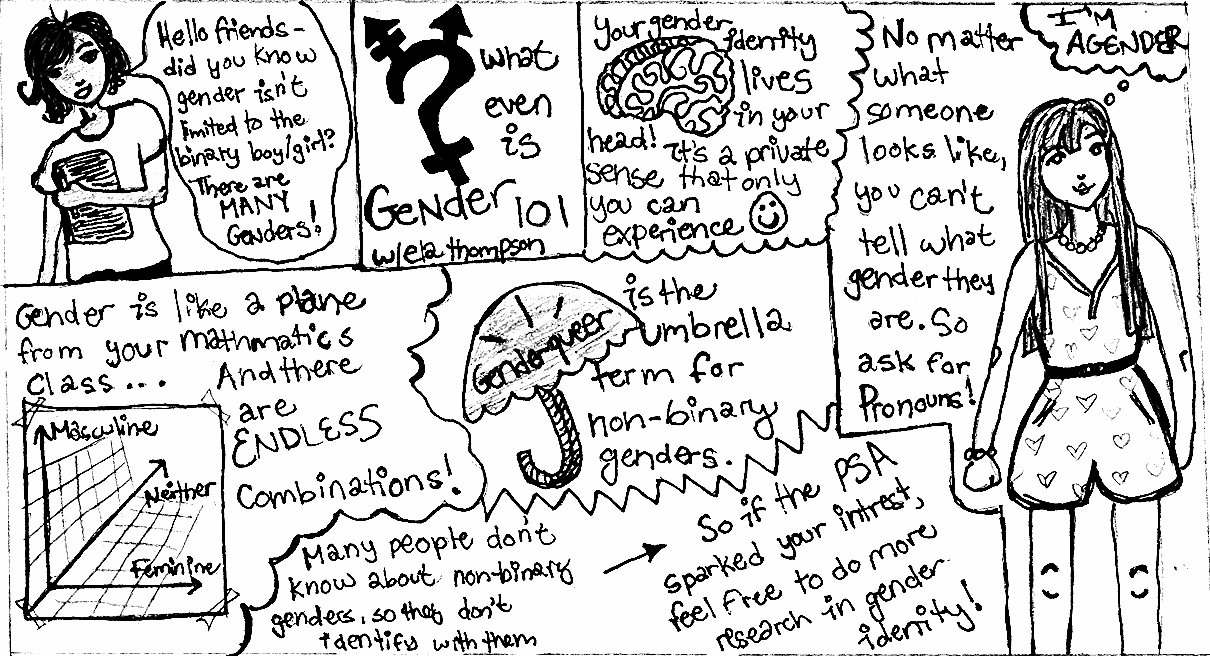 Hello friends-
did you know
gender isn't
limited to the
binary boy/girl?
There are
MANY
Genders!
what
even
is
GeNder 101
w/ela thompson
Your gender
identity
lives
in your
head! It's a private
sense that only
you can
experience
No matter
what
someone
looks like,
you can't
tell what
gender they
are. So
ask for
Pronouns!
I'M
AGENDER
Gender is like a plane
from your mathmatics
class... And there
are
ENDLESS
Combinations!
Masculine
Neither
Feminine
Genderqueer
is the
umbrella
term for
non-binary
genders.
Many people don't
know about non-binary
genders, so they don't
identify with them
So if the PSA
sparked your intrest,
feel free to do more
research in gender
identity!